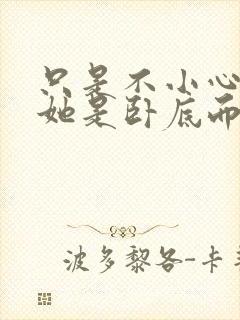 只是不小心
她是卧底而
波多黎各-卡